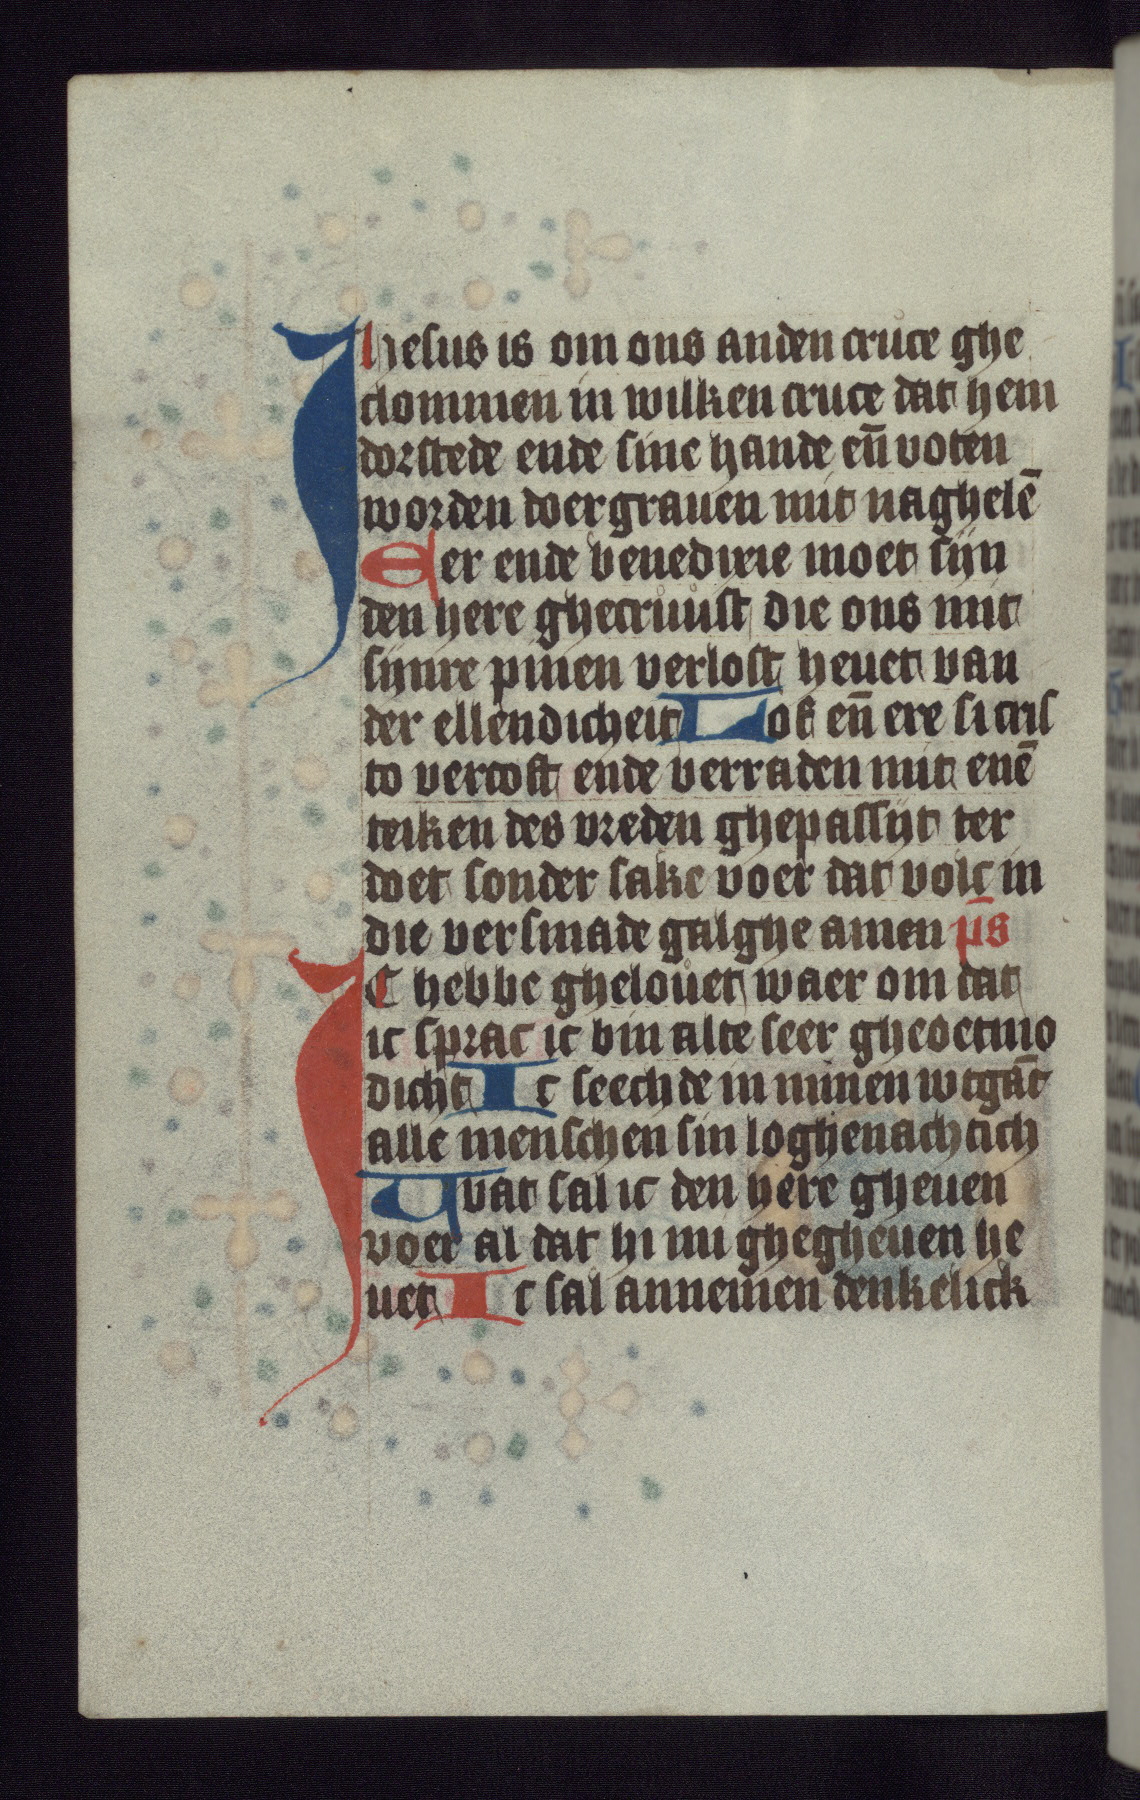 Ihesus is om ons anden cruce ghe
clommen in wilken cruce dat hem
dorstede ende sine hande en̄ voten
worden doergrauen mit naghelē
Eer ende benedixie moet sijn
den here ghecruust die ons mit
sijnre pinen verlost heuet van
der ellendicheit Lof en̄ ere si cris
to vercost ende verraden mit enē
teiken des vreden ghepassijt ter
doet sonder sake voer dat volc in
die versmade galghe amen p̄s
IC hebbe ghelouet waer om dat
ic sprac ic bin alte seer gheoetmo
dicht Ic seechde in minen wtgāt
alle menschen sin loghenachtich
Wat sal ic den here gheuen
voer al dat hi mi ghegheuen he
uet Ic sal annemen den kelick